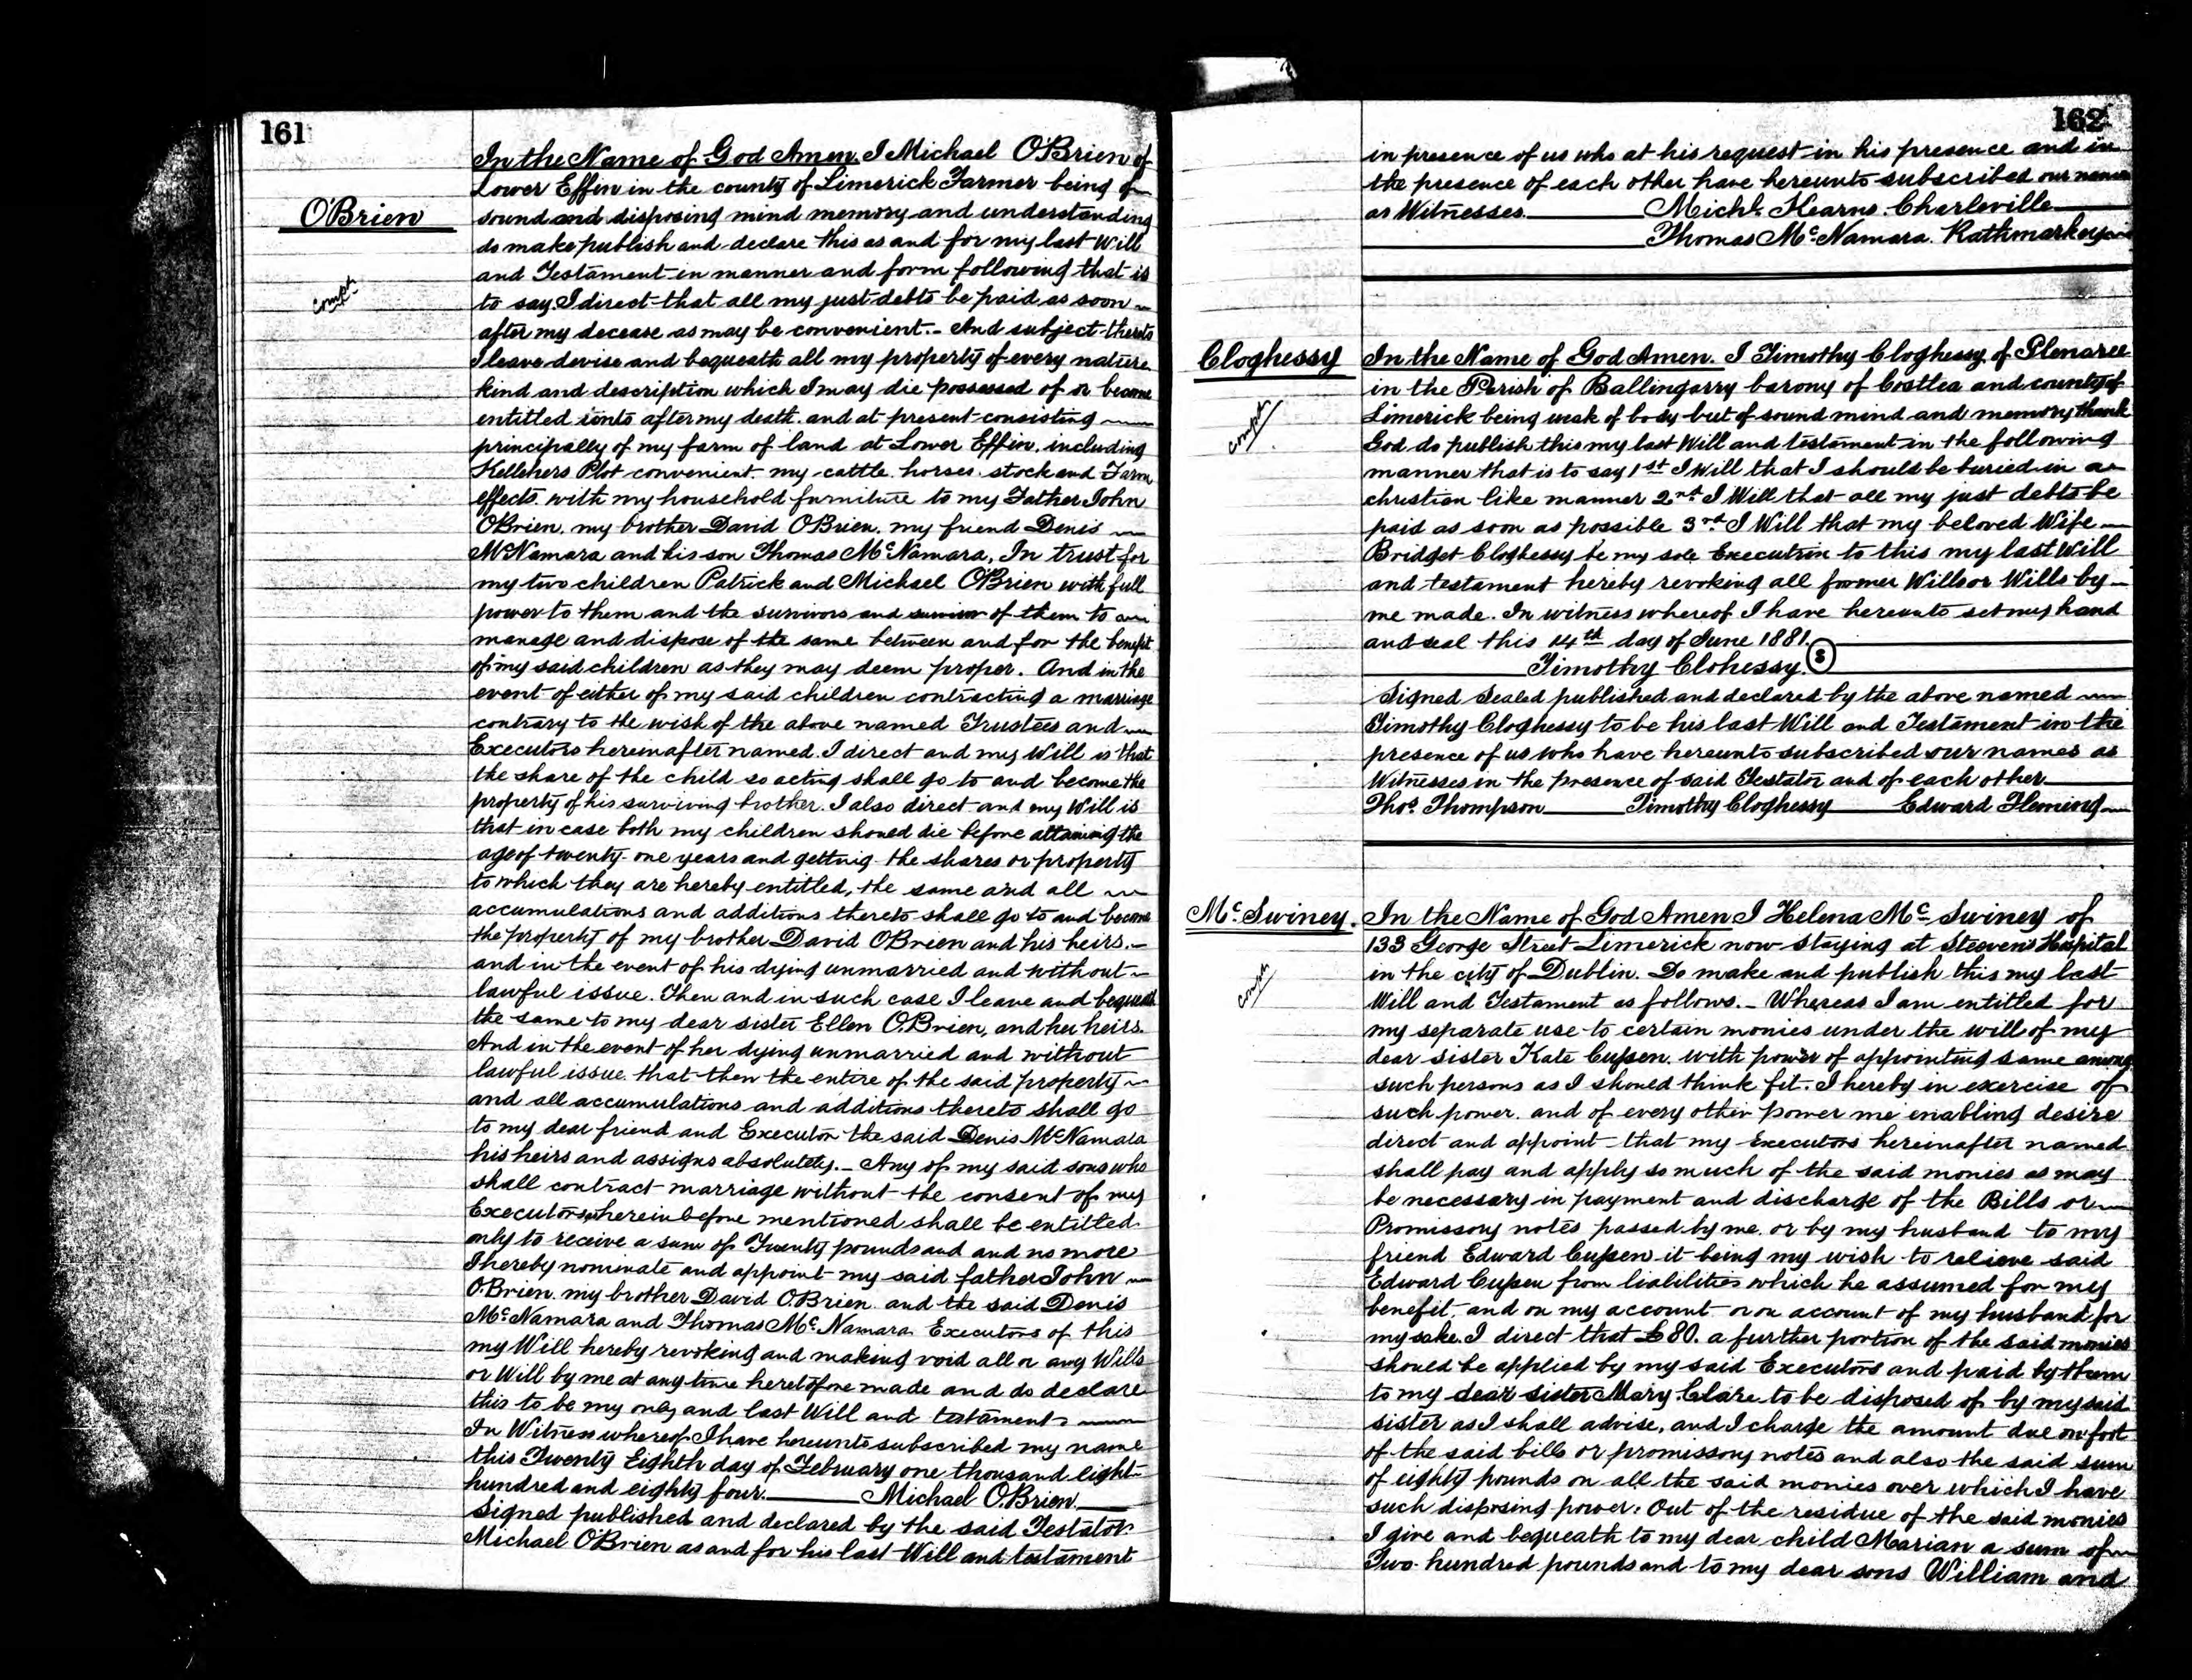 161
O'Brien
compd
In the Name of God Amen I Michael O'Brien of
Lower Effin in the county of Limerick Farmer being of
sound and disposing mind memory and understanding
do make publish and declare this as and for my last Will
and Testament in manner and form following that is
to say. I direct that all my just debts be paid as soon
after my decease as may be convenient. - And subject thereto
I leave devise and bequeath all my property of every nature
kind and description which I may die possessed of or become
entitled unto after my death. and at present consisting
principally of my farm of land at Lower Effin. including
Kellehers Plot convenient. my cattle. horses. stock and Farm
effects. with my household furniture to my Father John
O'Brien. my brother David O'Brien. my friend Denis
McNamara and his son Thomas McNamara, In trust for
my two children Patrick and Michael O'Brien with full
power to them and the survivors and survivor of them to
manage and dispose of the same between and for the benefit
of my said children as they may deem proper. And in the
event of either of my said children contracting a marriage
contrary to the wish of the above named Trustees and
Executors hereinafter named. I direct and my Will is that
the share of the child so acting shall go to and become the
property of his surviving brother. I also direct and my Will is
that in case both my children should die before attaining the
age of twenty one years and getting the shares or property
to which they are hereby entitled, the same and all
accumulations and additions thereto shall go to and become
the property of my brother David O'Brien and his heirs. -
and in the event of his dying unmarried and without
lawful issue. Then and in such case I leave and bequeath
the same to my dear sister Ellen O'Brien, and her heirs.
And in the event of her dying unmarried and without
lawful issue. that then the entire of the said property
and all accumulations and additions thereto shall go
to my dear friend and Executor the said Denis McNamara
his heirs and assigns absolutely. - Any of my said sons who
shall contract marriage without the consent of my
Executors hereinbefore mentioned shall be entitled
only to receive a sum of Twenty pounds and and no more
I hereby nominate and appoint my said father John
O'Brien. my brother David O'Brien. and the said Denis
McNamara and Thomas McNamara Executors of this
my Will hereby revoking and making void all or any Wills
or Will by me at any time heretofore made and do declare
this to be my only and last Will and testament
In Witness whereof I have hereunto subscribed my name
this Twenty Eighth day of February one thousand eight
hundred and eighty four. Michael O'Brien.
Signed published and declared by the said Testator
Michael O'Brien as and for his last Will and testament
162
in presence of us who at his request in his presence and in
the presence of each other have hereunto subscribed our names
as Witnesses. Michl. Hearns. Charleville
Thomas McNamara.
Cloghessy
compd
In the Name of God Amen. I Timothy Cloghessy of Glenaree
in the Parish of Ballingarry barony of Costlea and county of
Limerick being weak of body but of sound mind and memory thank
God do publish this my last Will and testament in the following
manner that is to say 1st I Will that I should be buried in a
christian like manner 2nd I Will that all my just debts be
paid as soon as possible 3rd I Will that my beloved Wife
Bridget Cloghessy be my sole Executrix to this my last Will
and testament hereby revoking all former Will or Wills by
me made. In witness whereof I have hereunto set my hand
and seal this 14th day of June 1881.
Timothy Clohessy. S
Signed Sealed published and declared by the above named
Timothy Cloghessy to be his last Will and Testament in the
presence of us who have hereunto subscribed our names as
Witnesses in the presence of said Testator and of each other
Thos. Thompson Timothy Cloghessy Edward Fleming
McSwiney.
compd
In the Name of God Amen I Helena McSwiney of
133 George Street Limerick now staying at Steevens Hospital
in the city of Dublin. Do make and publish this my last
Will and Testament as follows. - Whereas I am entitled for
my separate use to certain monies under the will of my
dear sister Kate Cussen. with power of appointing same among
such persons as I should think fit. I hereby in exercise of
such power. and of every other power me enabling desire
direct and appoint that my Executors hereinafter named
shall pay and apply so much of the said monies as may
be necessary in payment and discharge of the Bills or
Promissory notes passed by me. or by my husband to my
friend Edward Cussen it being my wish to relieve said
Edward Cussen from liabilities which he assumed for my
benefit, and on my account or on account of my husband for
my sake. I direct that £80. a further portion of the said monies
should be applied by my said Executors and paid by them
to my dear sister Mary Clare to be disposed of by my said
sister as I shall advise, and I charge the amount due on foot
of the said bills or promissory notes and also the said sum
of eighty pounds on all the said monies over which I have
such disposing power: Out of the residue of the said monies
I give and bequeath to my dear child Marian a sum of
Two hundred pounds and to my dear sons William and